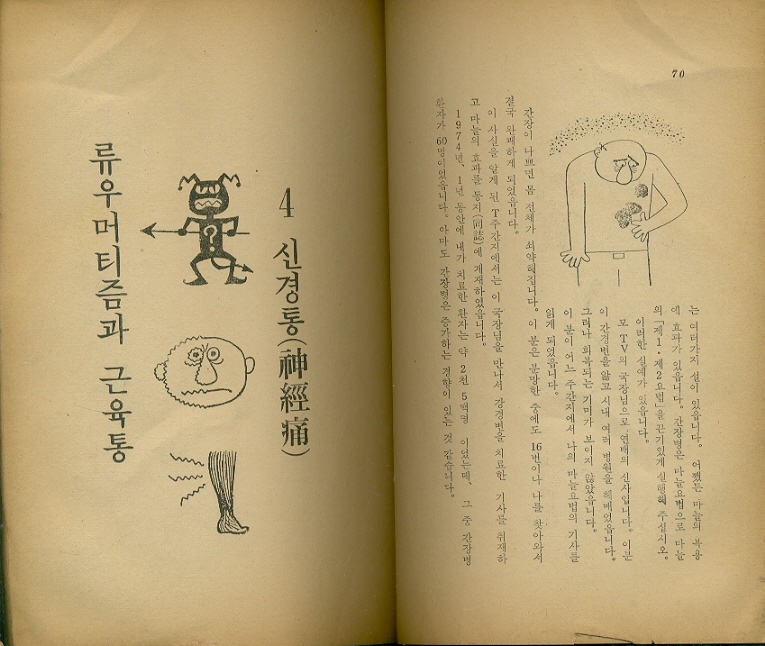 70
는 여러가지 설이 있읍니다. 어쨌든 마늘의 복용
에 효과가 있읍니다. 간장병은 마늘요법으로 마늘
의 「제1·제2요법」을 끈기있게 실행해 주십시오.
이러한 실예가 있읍니다.
모 TV의 국장님으로 연배의 신사입니다. 이분
이 간경변을 앓고 시내 여러 병원을 헤메었읍니다.
그러나 회복되는 기미가 보이지 않았읍니다.
이 분이 어느 주간지에서 나의 마늘요법의 기사를
읽게 되었읍니다.
간장이 나쁘면 몸 전체가 쇠약해집니다. 이 분은 분망한 중에도 16번이나 나를 찾아와서
결국 완쾌하게 되었읍니다.
이 사실을 알게 된 T주간지에서는 이 국장님을 만나서 간경변을 치료한 기사를 취재하
고 마늘의 효과를 동지(同誌)에 게재하였읍니다.
1974년, 1년 동안에 내가 치료한 환자는 약 2천 5백명 이었는데, 그 중 간장병
환자가 60명이었읍니다. 아마도 간장병은 증가하는 경향이 있는 것 같습니다.
4 신경통(神經痛)
류우머티즘과 근육통